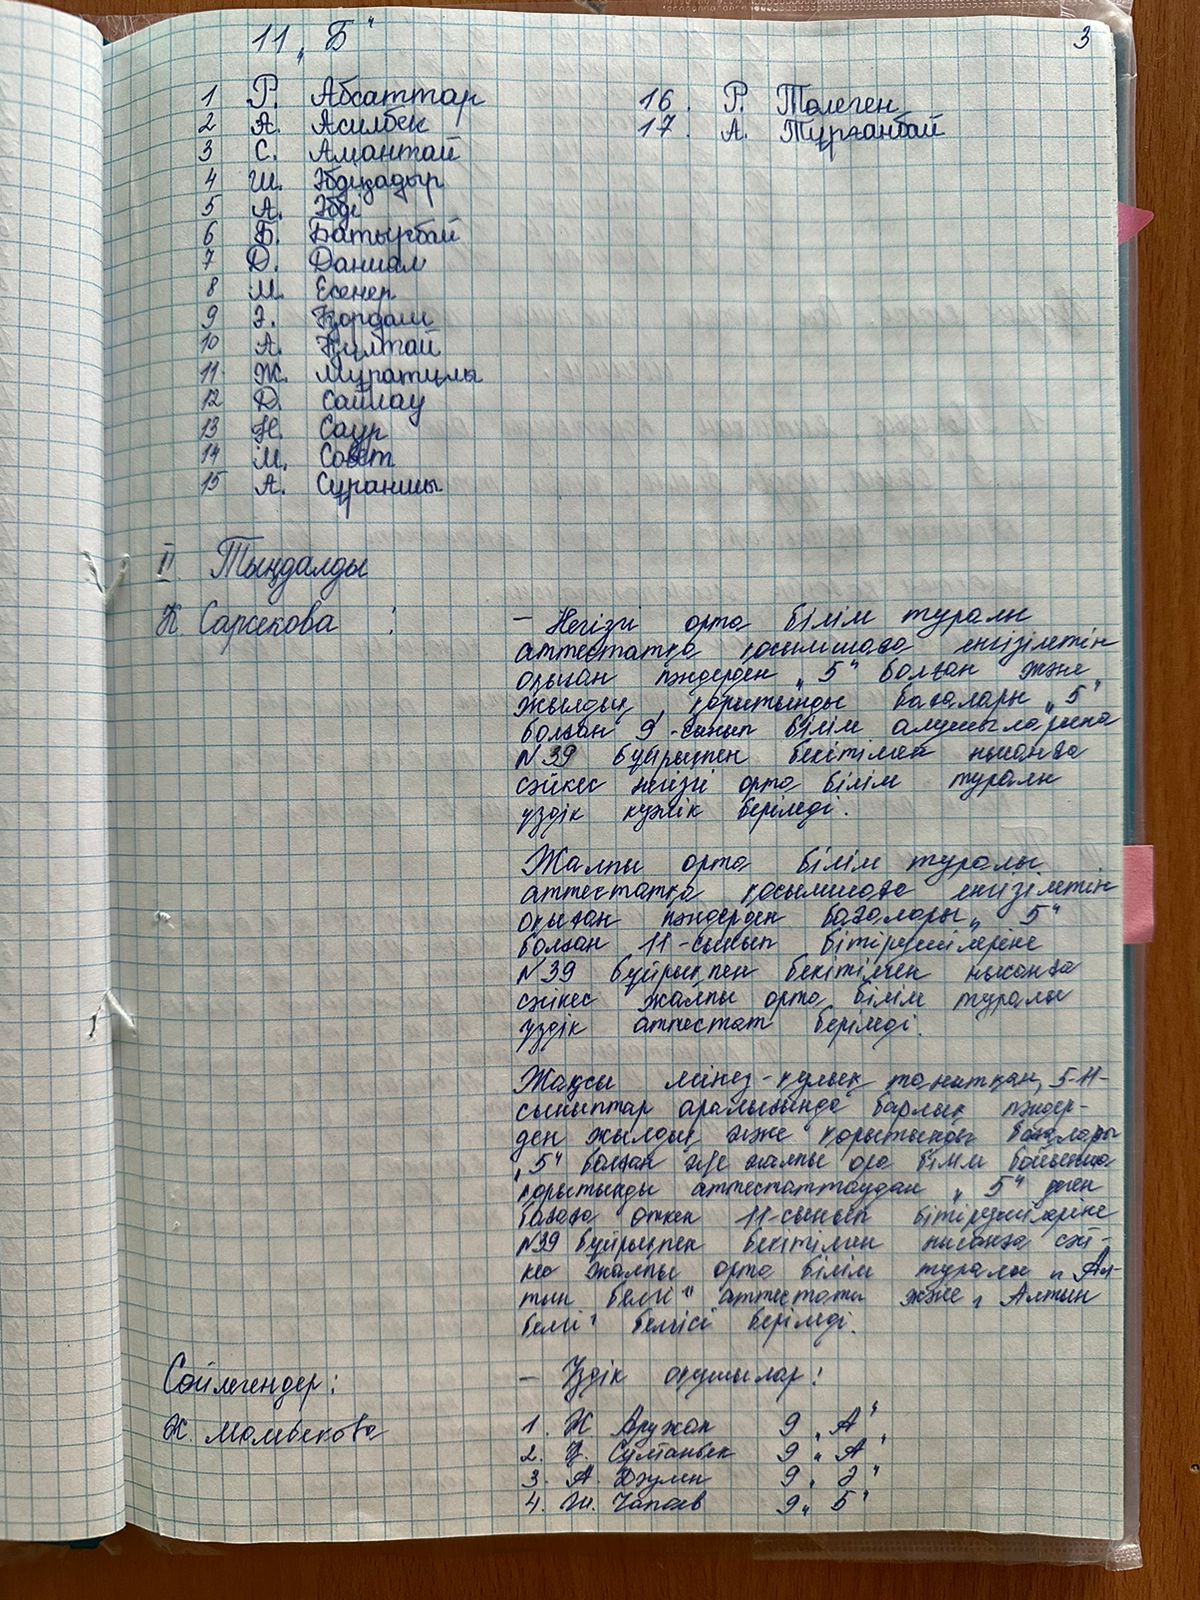 11 „Б“
3
1 Р. Абсаттар
2 А. Асилбек
3 С. Амантай
4 Ш. Әбдіқадыр
5 А. Әбді
6 Б. Батырбай
7 Д. Даниал
8 М. Есенер
9 Ә. Қордаш
10 А. Құлтай
11 Ж. Мұратұлы
12 Д. Сайлау
13 Н. Саур
14 М. Совет
15 А. Сұраншы
16. Р. Төлеген
17. А. Тұрғанбай
II Тыңдалды
К. Сарсекова :
– Негізгі орта білім туралы
аттестатқа қосымшаға енгізілетін
оқыған пәндерден „5“ болған және
жылдық, қорытынды бағалары „5“
болған 9-сынып білім алушыларына
№39 бұйрықпен бекітілген нысанға
сәйкес негізгі орта білім туралы
үздік куәлік беріледі.
Жалпы орта білім туралы
аттестатқа қосымшаға енгізілетін
оқыған пәндерден бағалары „5“
болған 11-сынып бітірушілеріне
№39 бұйрықпен бекітілген нысанға
сәйкес жалпы орта білім туралы
үздік аттестат беріледі.
Жақсы мінез-құлық танытқан, 5-11-
сыныптар аралығында барлық пәндер-
ден жылдық және қорытынды бағалары
„5“ болған жалпы білім бойынша
қорытынды аттестаттаудан „5“ деген
бағаға өткен 11-сынып бітірушілеріне
№39 бұйрықпен бекітілген нысанға сәй-
кес жалпы орта білім туралы „Ал-
тын белгі“ аттестаты және „Алтын
белгі“ белгісі беріледі.
Сөйлегендер:
– Үздік оқушылар:
Ж. Мамбекова
1. Ж Аружан 9 „А“
2. Сұлтанбек 9 „А“
3. А. 9 „Ә“
4. Ш. Чапаев 9 „Б“